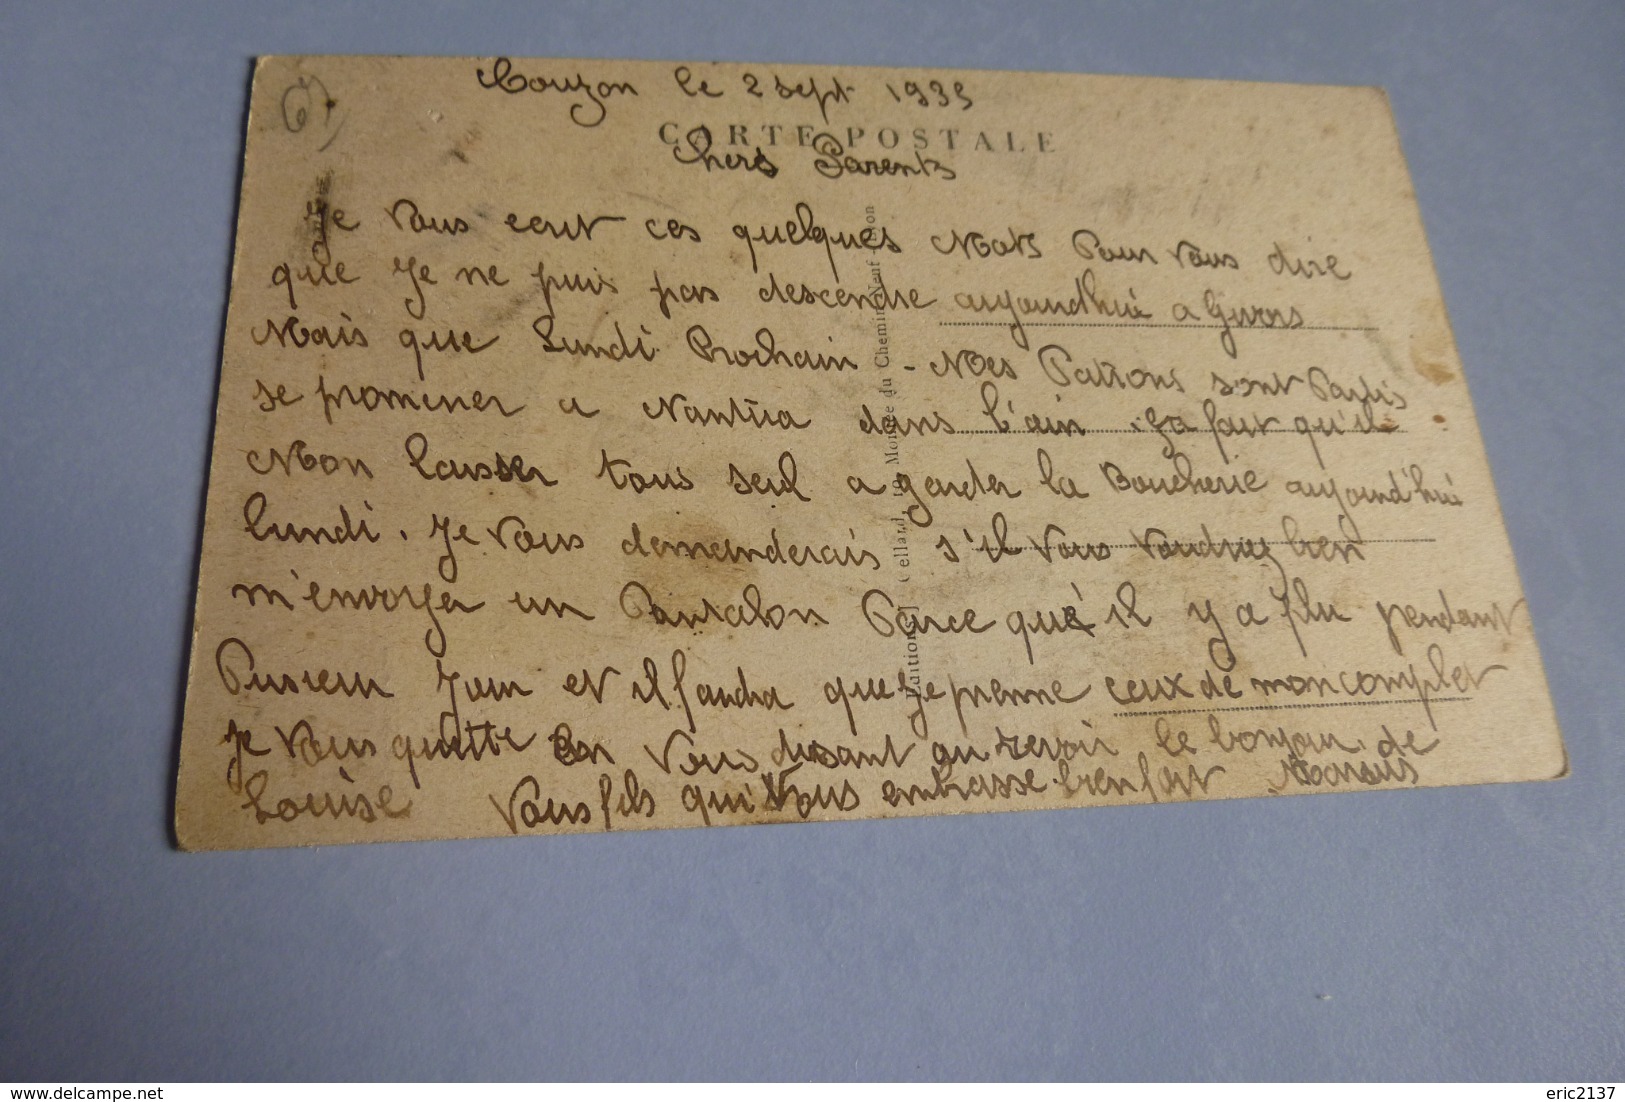 69
Couzon le 2 sept 1935
CARTE POSTALE
Chers Parents
Je vous ecrit ces quelques Mots Pour vous dire
que Je ne puis pas descendre aujourd'hui a Givors
Mais que Lundi Prochain - Mes Patrons sont Partis
se promener a Nantua dans l'ain. Ça fait qu'il
Mon laisser tous seul a garder la Boucherie aujourd'hui
lundi. Je vous demanderais s'il vous voudriez bien
m'envoyer un Pantalon Parce qu'il y a plu pendant
Pusieur Jour et il faudra que Je prenne ceux de mon complet
Je vous quitte en vous disant au revoir le bonjour de
Louise Vous fils qui vous embrasse bien fort Marius
Editions Cellard, Montée du Chemin Neuf - Lyon
www.delcampe.net
eric2137